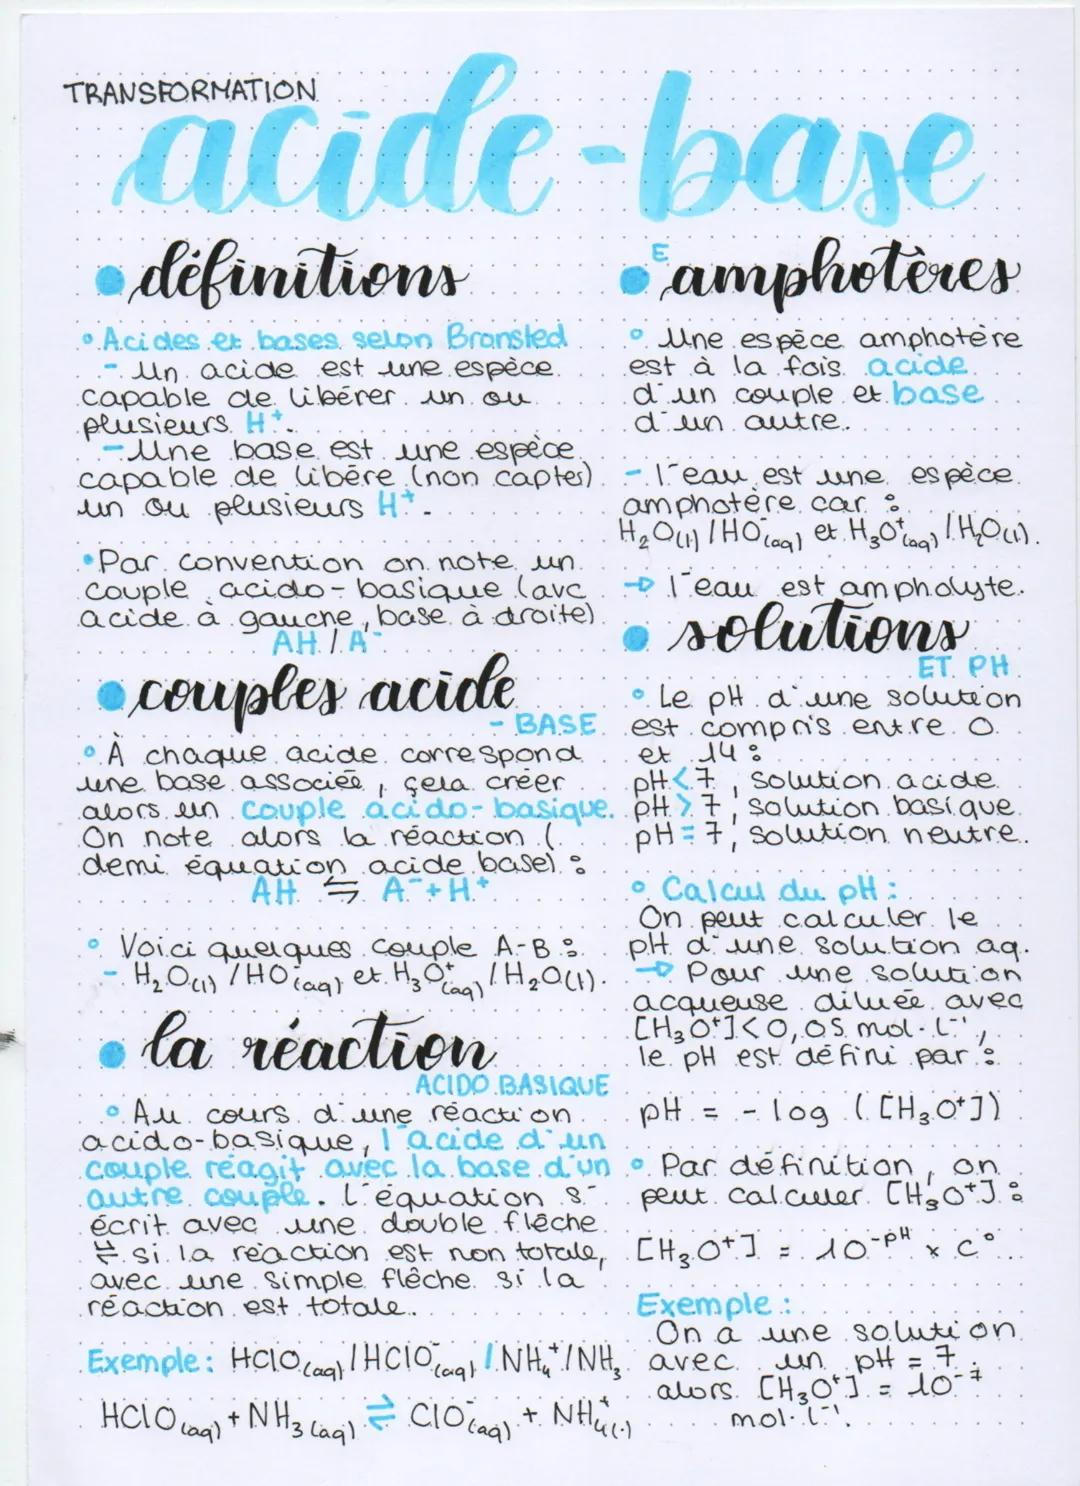 TRANSFORMATION
acide-base
définitions
Acides et bases selon Bronsted
- Un acide est une espèce
capable de libérer un ou
plusieurs H⁺.
- Une base est une espèce
capable de libère (non capter)
un ou plusieurs H⁺.
Par convention on note un
couple acido-basique (avc
acide à gauche, base à droite)
AH / A⁻
couples acide
- BASE
À chaque acide correspond
une base associée, çela créer
alors un couple acido-basique.
On note alors la réaction (
demi équation acide base) :
AH ⇆ A⁻ + H⁺
Voici quelques couple A-B :
- H₂O(l) / HO⁻(aq) et H₃O⁺(aq) / H₂O(l).
la réaction
ACIDO BASIQUE
Au cours d'une réaction
acido-basique, l'acide d'un
couple réagit avec la base d'un
autre couple. L'équation s'
écrit avec une double flèche
⇄ si la réaction est non totale,
avec une simple flèche si la
réaction est totale.
Exemple : HClO(aq) / HClO⁻(aq) / NH₄⁺/NH₃
HClO(aq) + NH₃(aq) ⇌ ClO⁻(aq) + NH₄⁺(.)
E
amphotères
Une espèce amphotère
est à la fois acide
d'un couple et base
d'un autre.
- l'eau est une espèce
amphotère car :
H₂O(l) / HO⁻(aq) et H₃O⁺(aq) / H₂O(l).
→ l'eau est ampholyte.
solutions
ET PH
Le pH d'une solution
est compris entre 0
et 14 :
pH < 7, solution acide
pH > 7, solution basique
pH = 7, solution neutre.
Calcul du pH :
On peut calculer le
pH d'une solution aq.
→ Pour une solution
acqueuse diluée avec
[H₃O⁺] < 0,05 mol.L⁻¹,
le pH est défini par :
pH = - log ([H₃O⁺])
Par définition, on
peut calculer [H₃O⁺] :
[H₃O⁺] = 10⁻ᵖᴴ × c°
Exemple :
On a une solution
avec un pH = 7
alors [H₃O⁺] = 10⁻⁷
mol.L⁻¹.